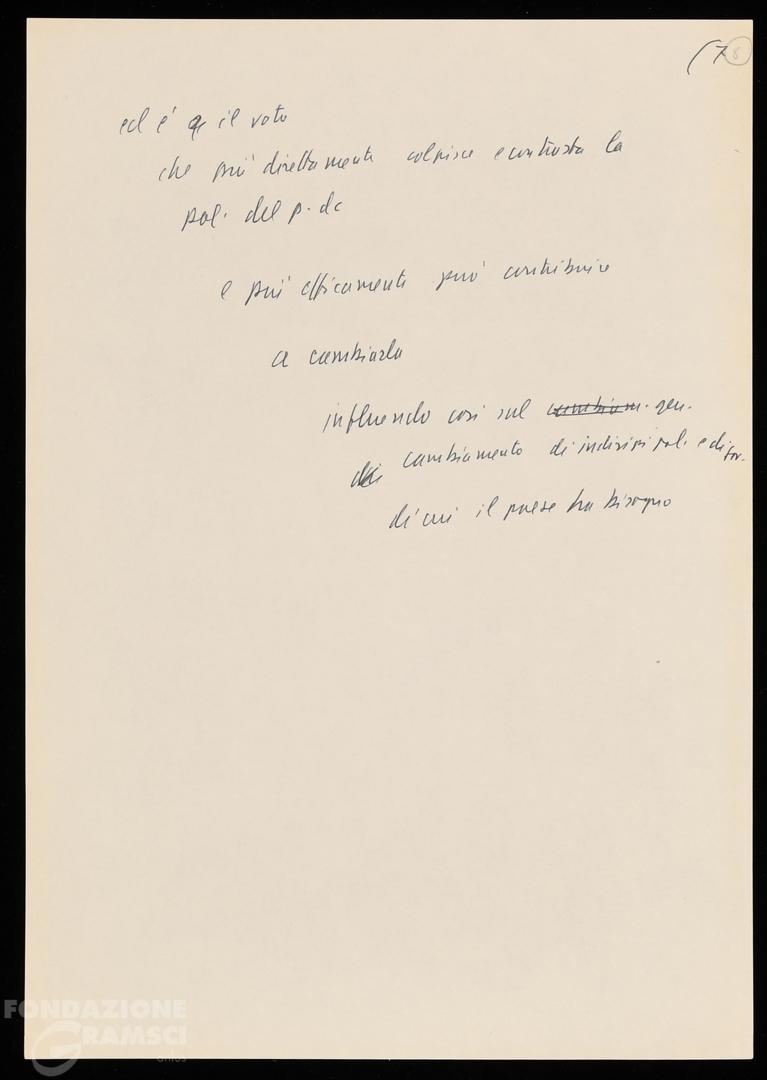 (7 8
ed è il voto
che più direttamente colpisce e contrasta la
pol. del p. dc
e più efficamente può contribuire
a cambiarla
influendo così sul cambiam. gen.
cambiamento di indirizzi pol. e di for.
di cui il paese ha bisogno
FONDAZIONE
GRAMSCI